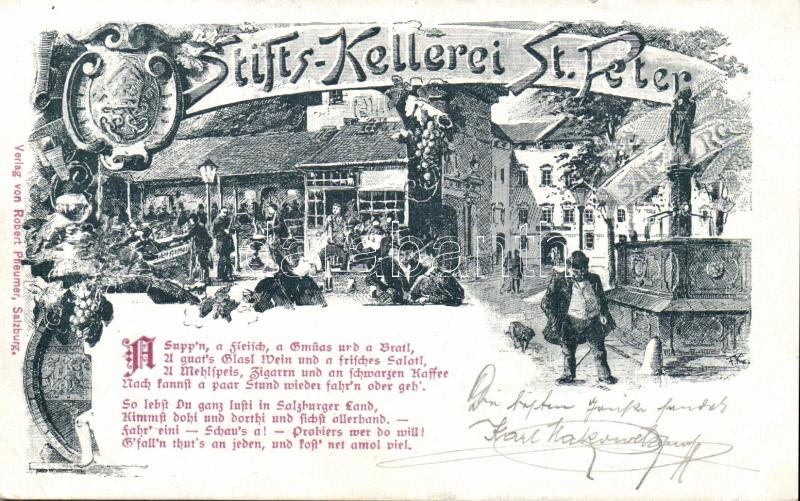 Stifts-Kellerei St. Peter
A Supp'n, a Fleisch, a Gmüas und a Bratl,
A guat's Glasl Wein und a frisches Salatl,
A Mehlspeis, Zigarrn und an schwarzen Kaffee
Nach kannst a paar Stund wieder fahr'n oder geh'.
So lebst Du ganz lusti in Salzburger Land,
Kimmst dohi und dorthi und sichst allerhand. —
Fahr' eini — Schau's a! — Probiers wer do will!
G'fall'n thut's an jeden, und kost' net amol viel.
Verlag von Robert Pheumer, Salzburg.
Die besten Grüße sendet
Karl
darabanth